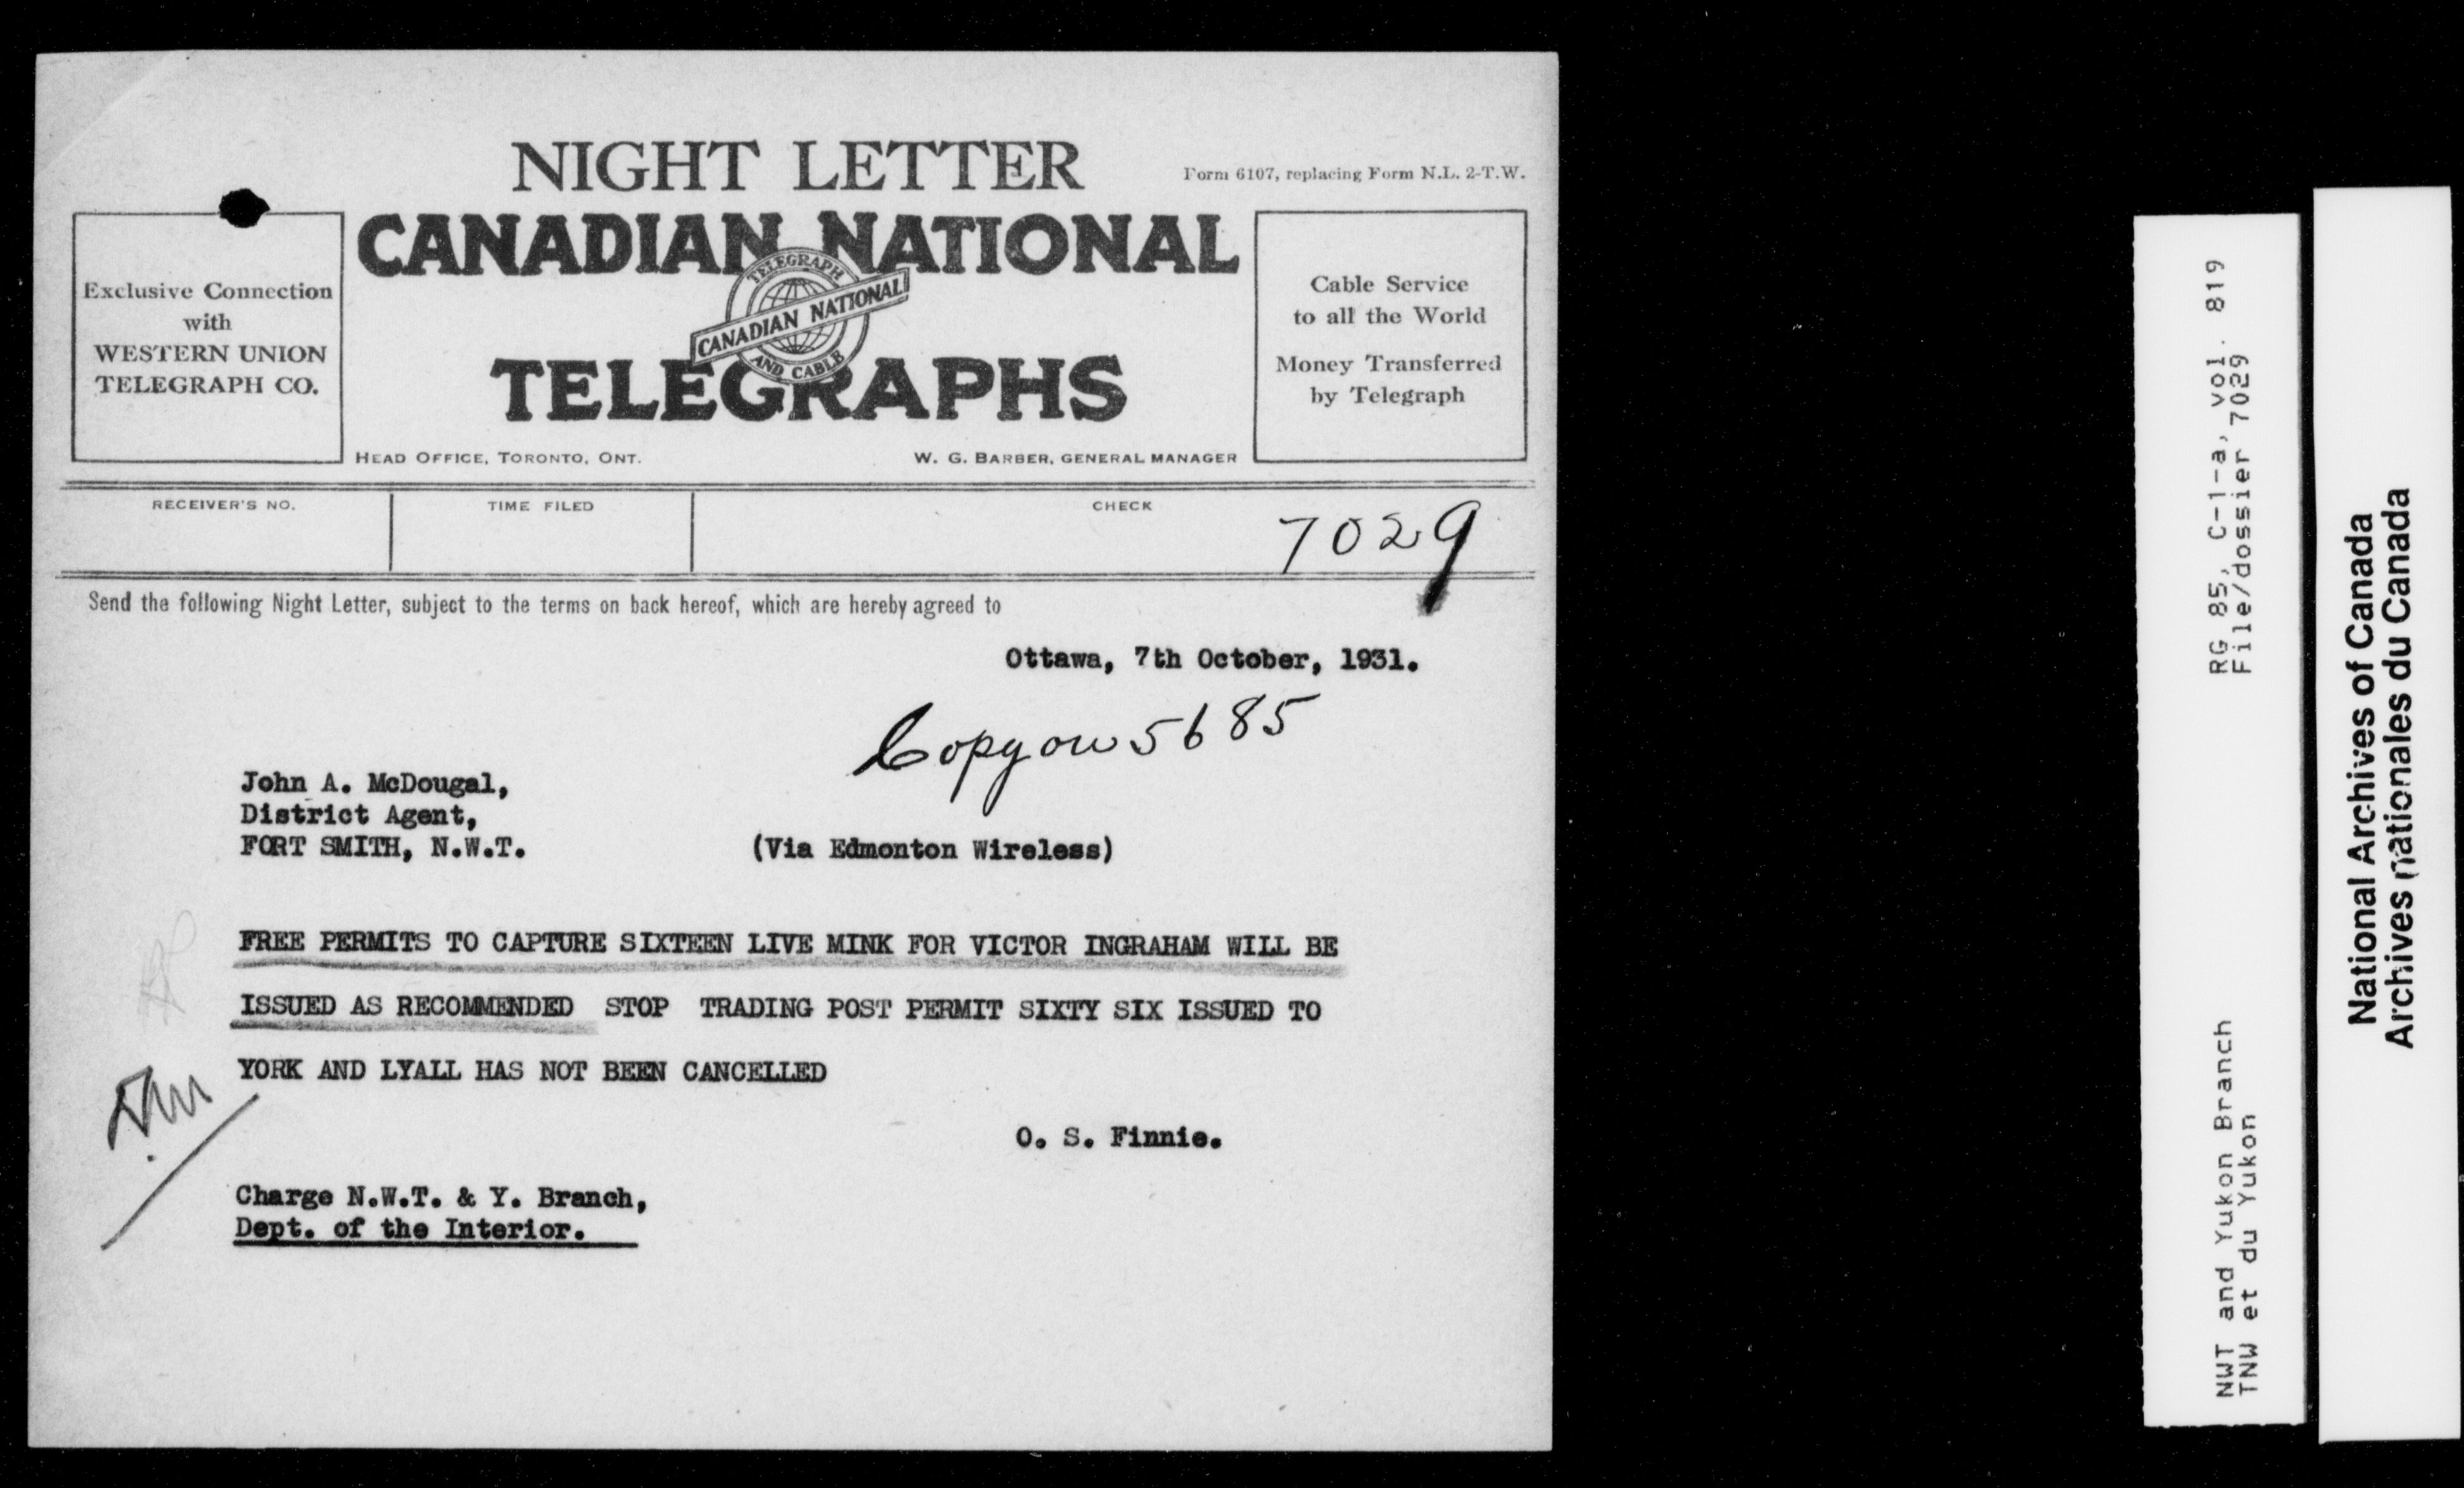 NIGHT LETTER
Form 6107, replacing Form N.L. 2-T.W.
Exclusive Connection
with
WESTERN UNION
TELEGRAPH CO.
CANADIAN NATIONAL
TELEGRAPH
CANADIAN NATIONAL
AND CABLE
TELEGRAPHS
Cable Service
to all the World
Money Transferred
by Telegraph
HEAD OFFICE, TORONTO, ONT.
W. G. BARBER, GENERAL MANAGER
RECEIVER'S NO.
TIME FILED
CHECK
7029
Send the following Night Letter, subject to the terms on back hereof, which are hereby agreed to
Ottawa, 7th October, 1931.
Copy on 5685
John A. McDougal,
District Agent,
FORT SMITH, N.W.T.
(Via Edmonton Wireless)
FREE PERMITS TO CAPTURE SIXTEEN LIVE MINK FOR VICTOR INGRAHAM WILL BE
ISSUED AS RECOMMENDED STOP TRADING POST PERMIT SIXTY SIX ISSUED TO
YORK AND LYALL HAS NOT BEEN CANCELLED
O. S. Finnie.
Charge N.W.T. & Y. Branch,
Dept. of the Interior.
RG 85, C-1-a, vol. 819
File/dossier 7029
NWT and Yukon Branch
TNW et du Yukon
National Archives of Canada
Archives nationales du Canada